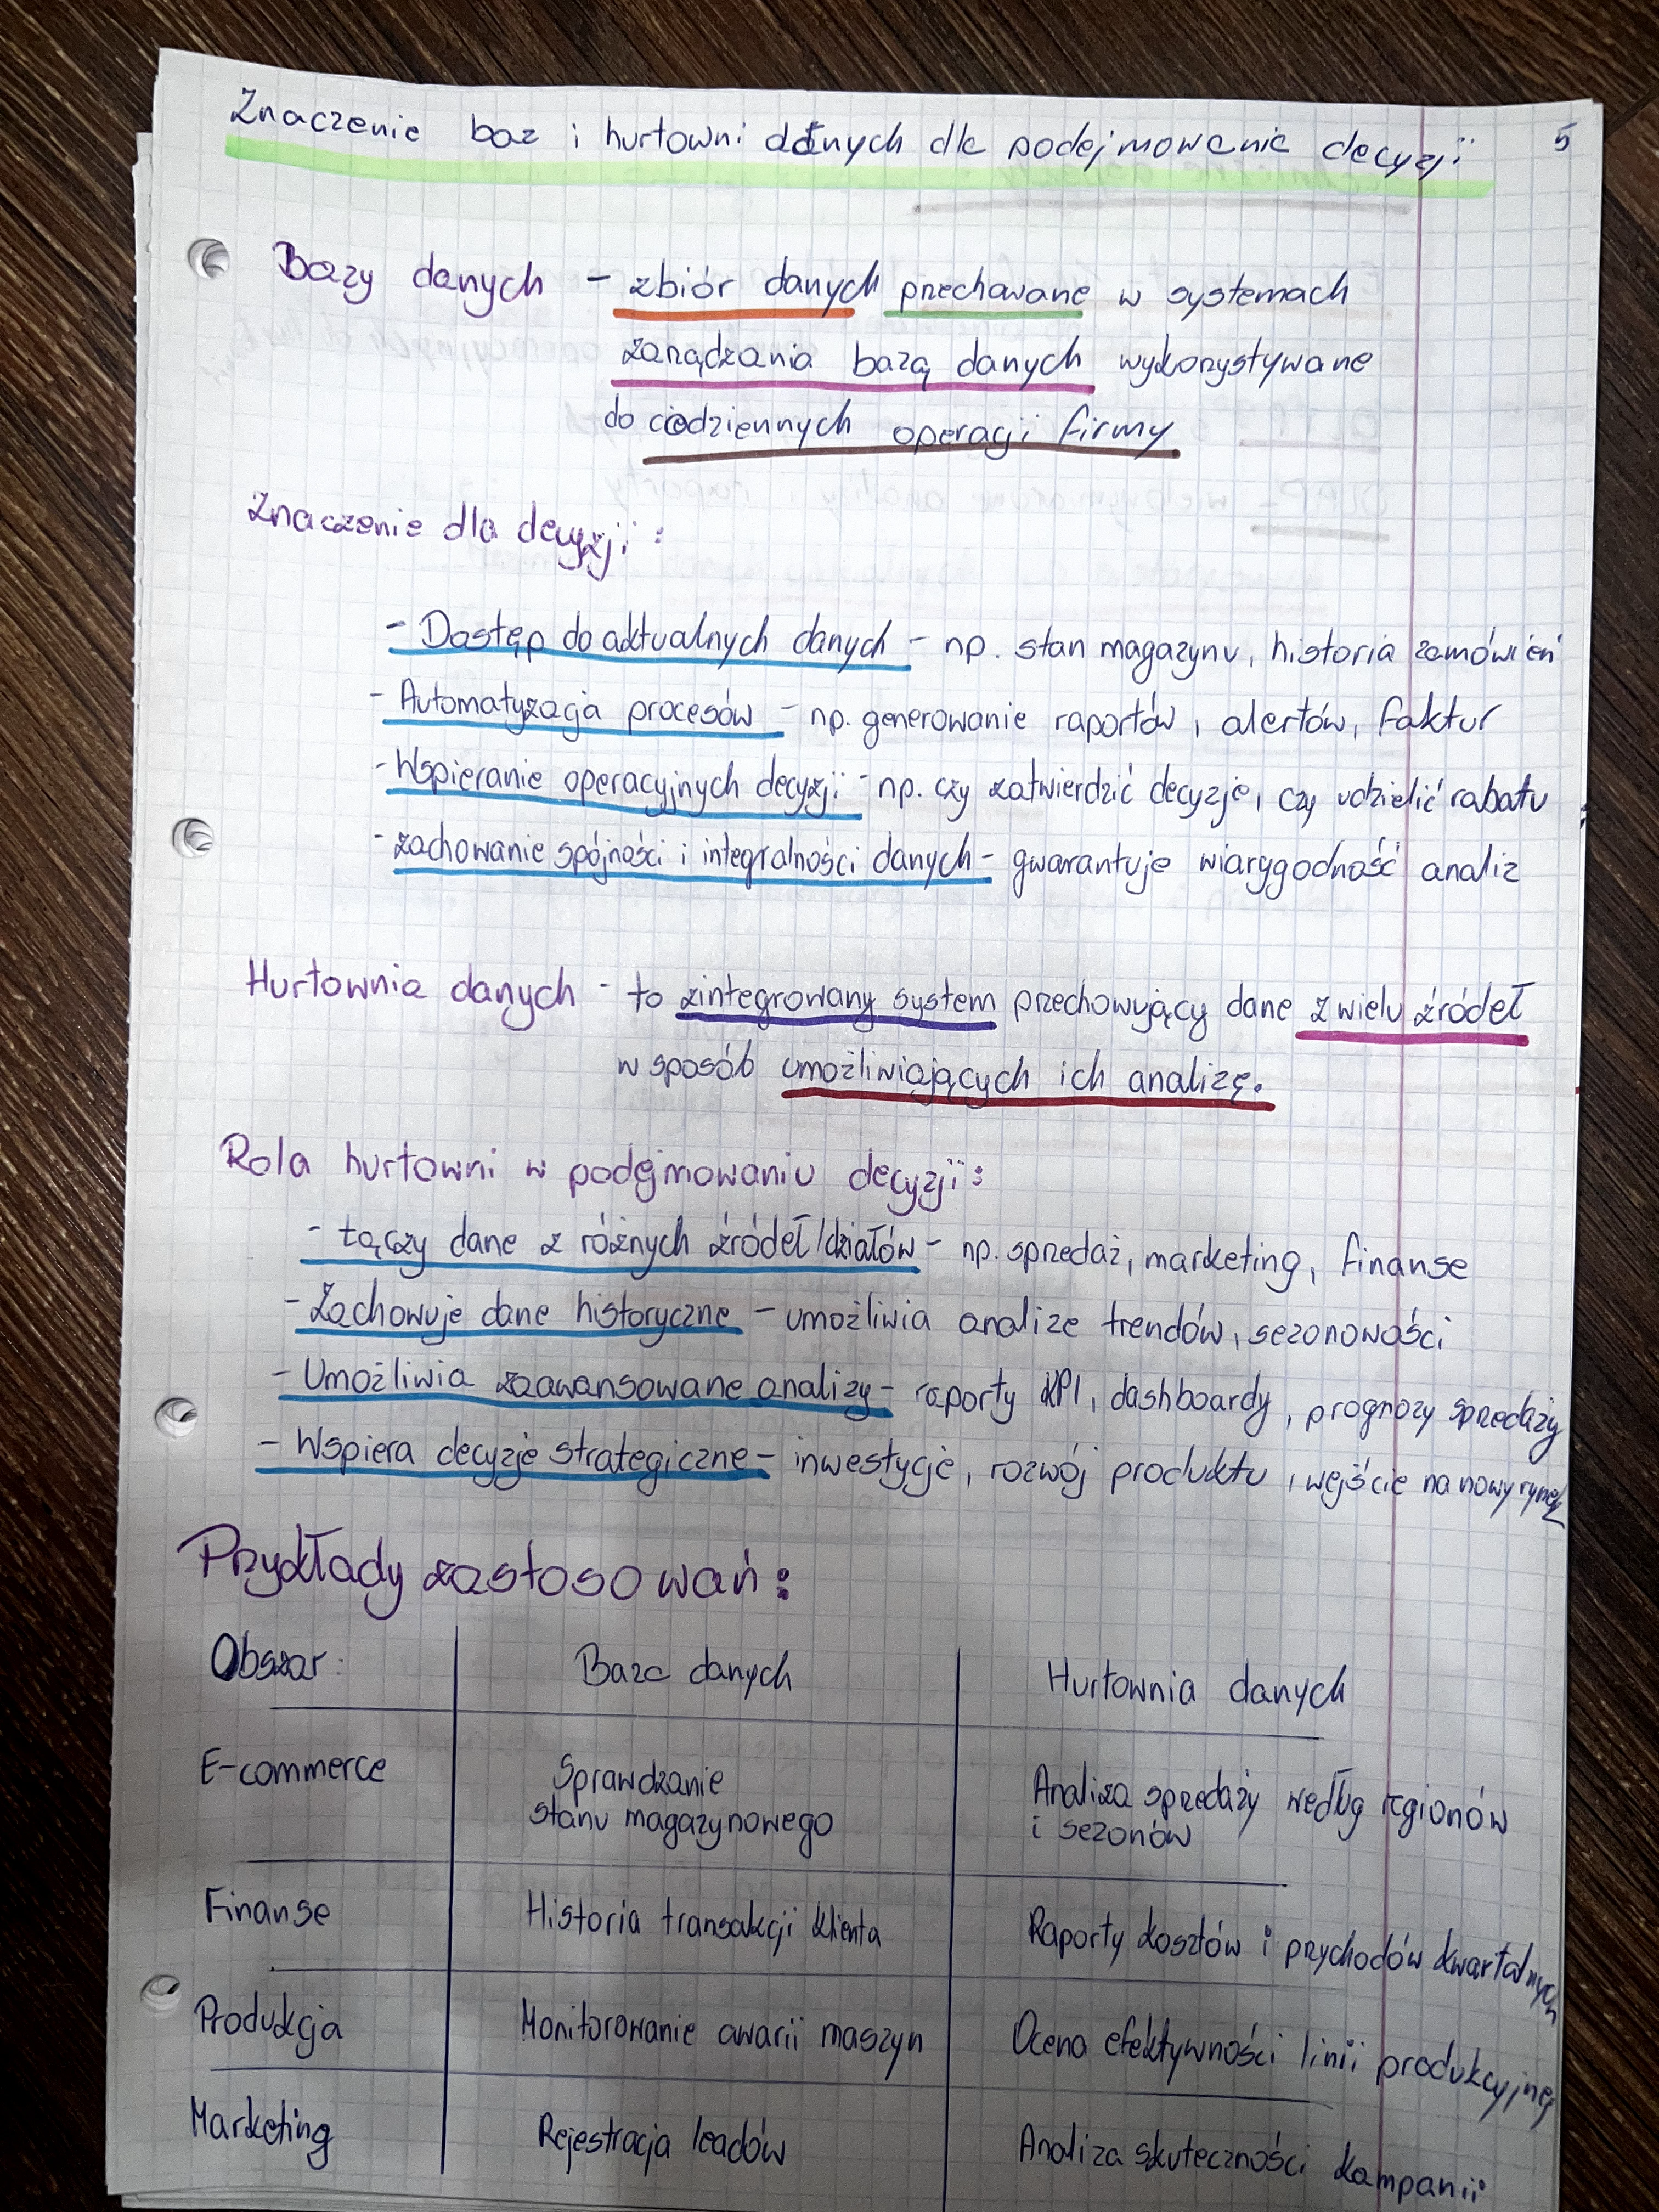 Znaczenie baz i hurtowni danych dla podejmowania decyzji 5
Bazy danych - zbiór danych przechowane w systemach
zarządzania bazą danych wykorzystywane
do codziennych operacji firmy
Znaczenie dla decyzji :
- Dostęp do aktualnych danych - np. stan magazynu, historia zamówień
- Automatyzacja procesów - np. generowanie raportów, alertów, faktur
- Wspieranie operacyjnych decyzji - np. czy zatwierdzić decyzje, czy udzielić rabatu
- zachowanie spójności i integralności danych - gwarantuje wiarygodność analiz
Hurtownia danych - to zintegrowany system przechowujący dane z wielu źródeł
w sposób umożliwiających ich analizę.
Rola hurtowni w podejmowaniu decyzji :
- łączy dane z różnych źródeł/działów - np. sprzedaż, marketing, finanse
- Zachowuje dane historyczne - umożliwia analize trendów, sezonowości
- Umożliwia zaawansowane analizy - raporty KPI, dashboardy, prognozy sprzedaży
- Wspiera decyzje strategiczne - inwestycje, rozwój produktu, wejście na nowy rynek
Przykłady zastosowań :
Obszar : Baza danych Hurtownia danych
E-commerce Sprawdzanie stanu magazynowego Analiza sprzedaży według regionów i sezonów
Finanse Historia transakcji klienta Raporty kosztów i przychodów kwartalnych
Produkcja Monitorowanie awarii maszyn Ocena efektywności linii produkcyjnej
Marketing Rejestracja leadów Analiza skuteczności kampanii